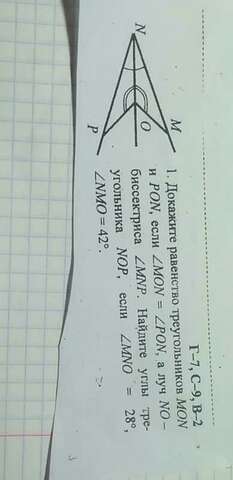 Г–7, С–9, В–2
1. Докажите равенство треугольников MON
и PON, если ∠MON = ∠PON, а луч NO –
биссектриса ∠MNP. Найдите углы тре-
угольника NOP, если ∠MNO = 28°,
∠NMO = 42°.
N
M
O
P